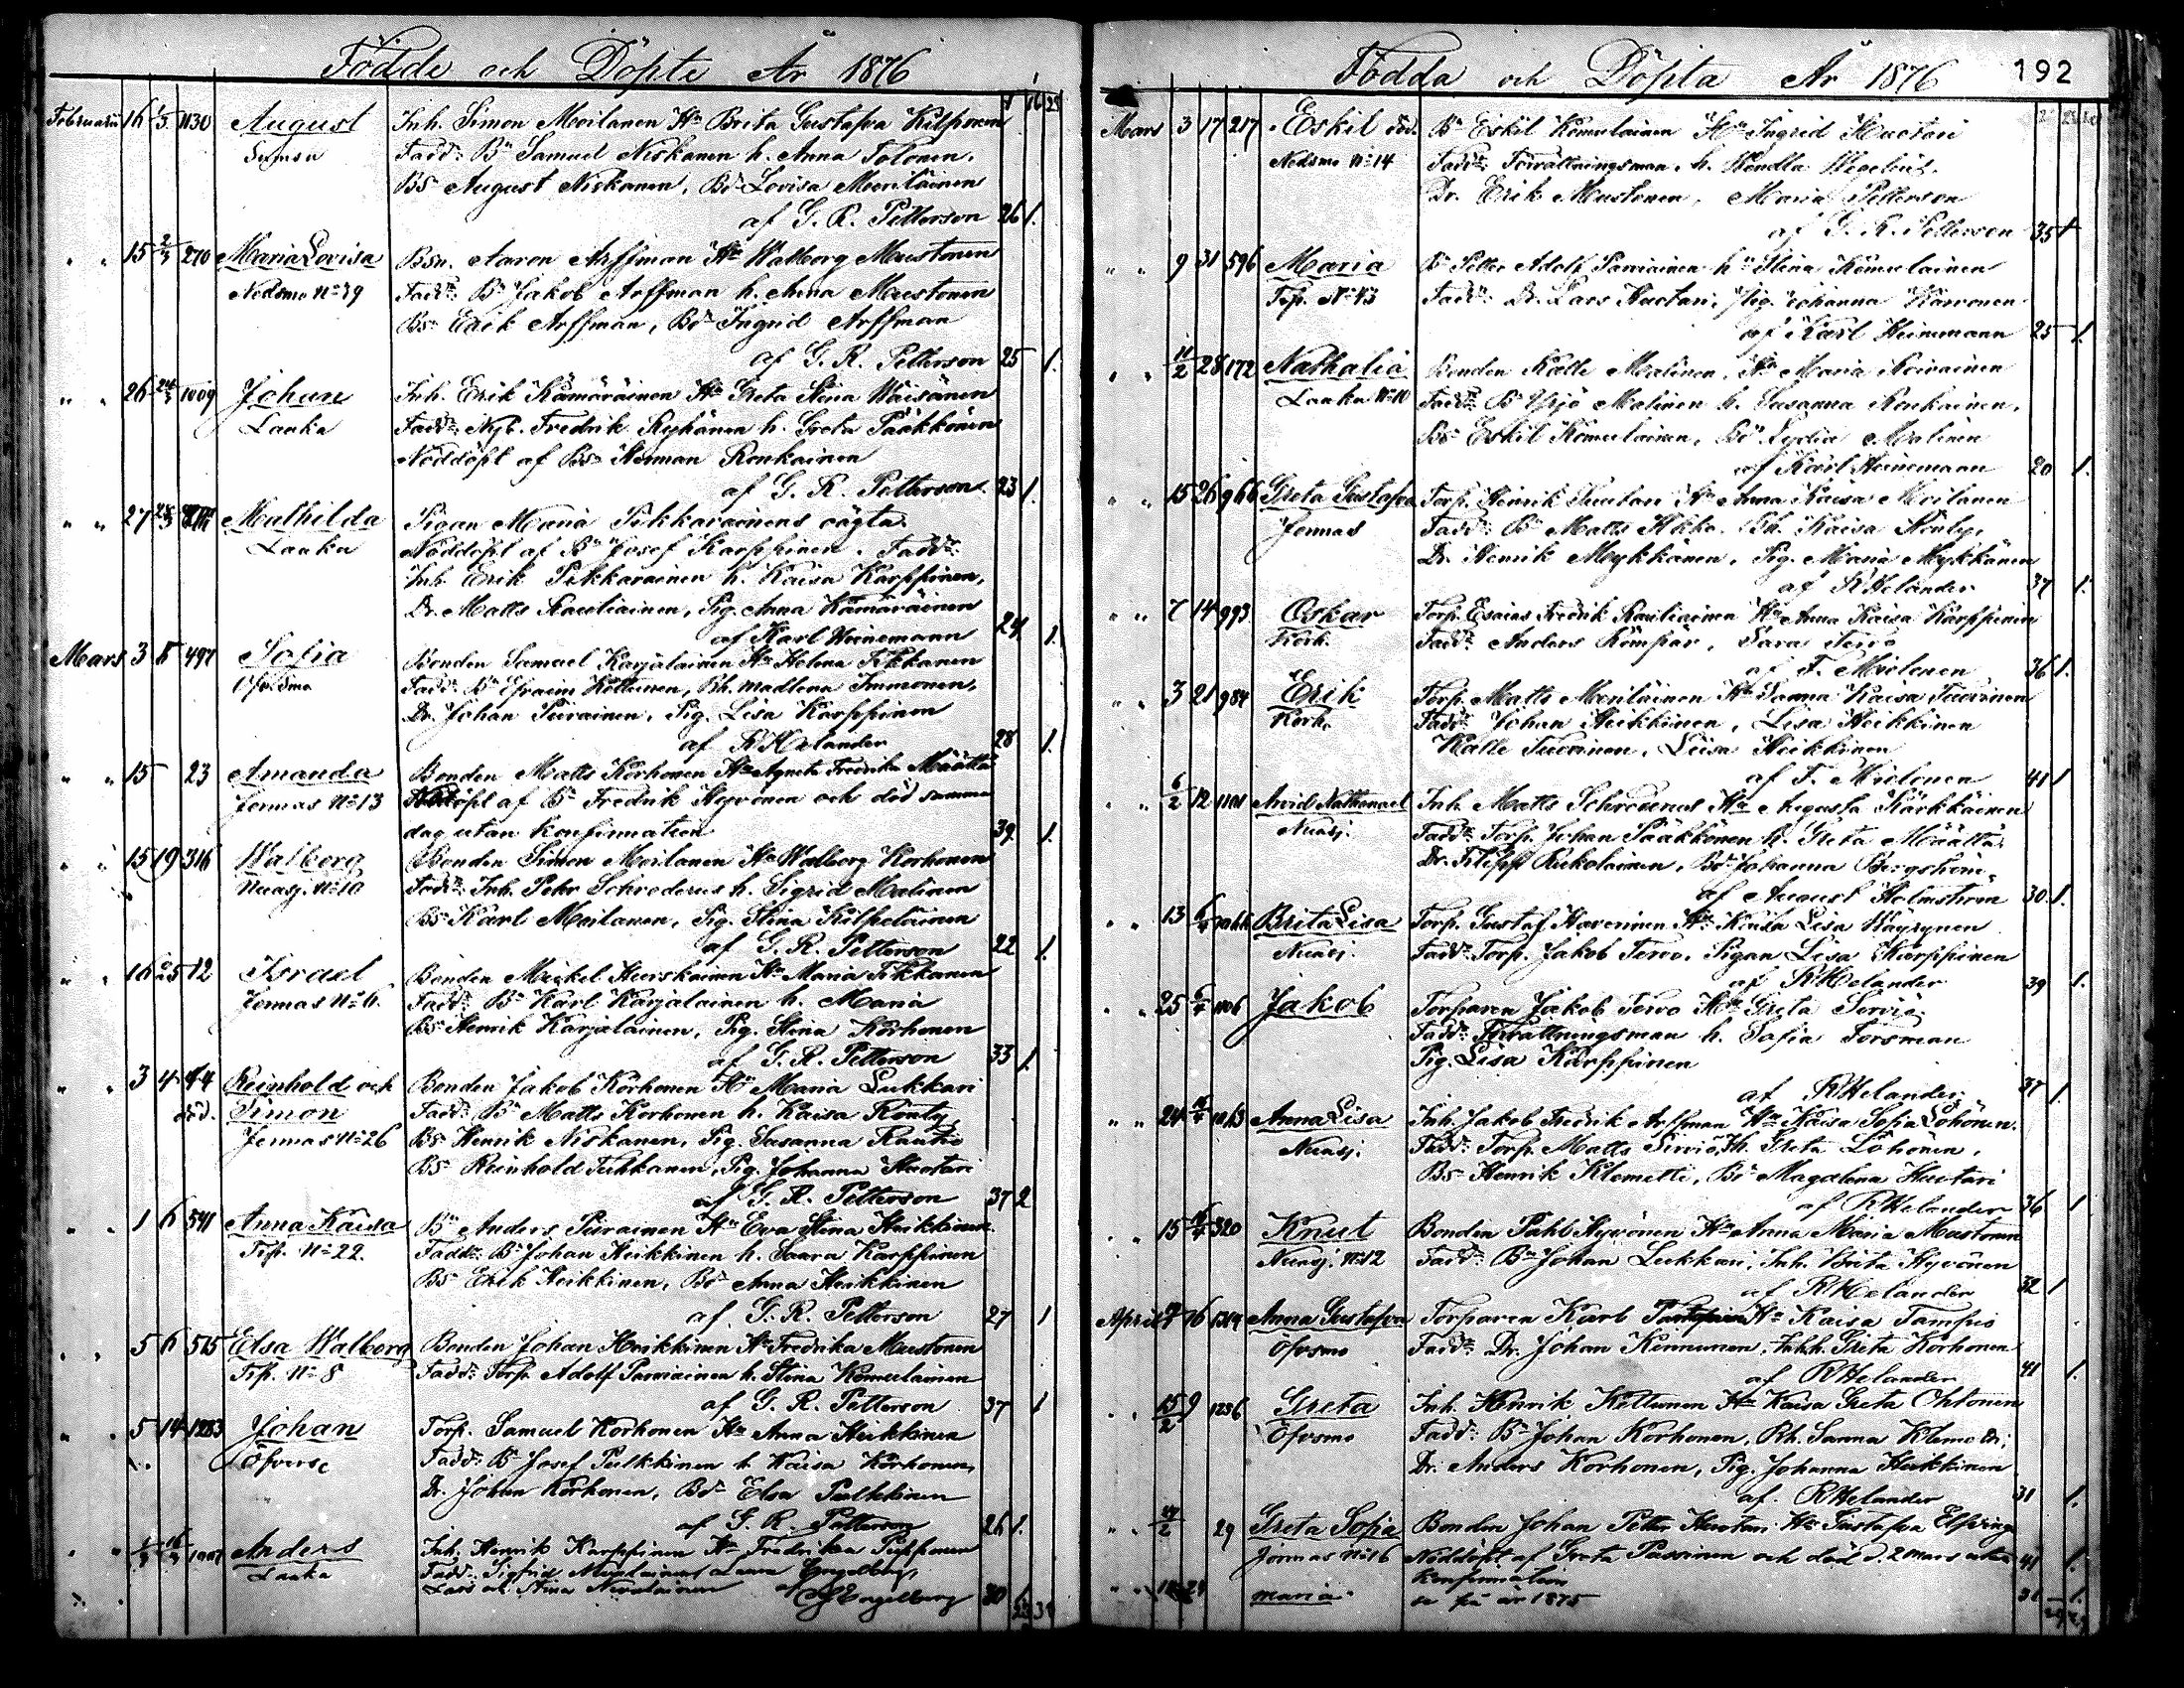 Födde och Döpte År 1876
Februarii 16 1/3 1130 August Inh. Simon Moilanen Hu Brita Gustafva Kilponen
Sumsa Fadd: Bn Samuel Niskanen h. Anna Tolonen.
Bs August Niskanen, Bd Lovisa Meriläinen
af G. R. Petterson 26 1.
" " 15 2/3 270 Maria Lovisa Bsn. Aaron Arffman Hu Walborg Mustonen
Nedsmo No 39 Fadd: Bn Jakob Arffman h. Anna Mustonen
Bs Erik Arffman, Bd Ingrid Arffman
af G. R. Petterson 25 1.
" " 26 1009 Johan Inh. Erik Kämäräinen Hu Greta Stina Wäisänen
Laaka Fadd: Nyb. Fredrik Ryhänen h. Greta Pääkkönen
Nöddöpt af Bs Herman Ronkainen
af G. R. Petterson. 23 1.
" " 27 Mathilda Pigan Maria Pikkarainens oägta.
Laaka Nöddöpt af Bn Josef Karppinen. Fadd:
Inh. Erik Pikkarainen h. Kaisa Karppinen,
Dr. Matts Rautiainen, Pig. Anna Kämäräinen
af Karl Heinemann 24 1.
Mars 3 5 497 Sofia Bonden Samuel Karjalainen Hu Helena Tikkanen
Öfvsmo Fadd: Bn Efraim Kettunen, Bh. Madlena Immonen,
Dr. Johan Piirainen, Pig. Lisa Karppinen
af R Helander 28 1.
" " 15 23 Amanda Bonden Matts Korhonen Hu Agneta Fredrika Määttä
Jormas No 13 Nöddöpt af Bn Fredrik Hyvönen och död samma
dag utan konfirmation 39. 1.
" " 15 19 316 Walborg Bonden Simon Moilanen Hu Walborg Korhonen
Nuasj. No 10 Fadd: Inh. Pehr Schroderus h. Sigrid Malinen
Bs Karl Moilanen, Pig. Stina Kilpeläinen
af G. R. Petterson 22 1.
" " 16 25 12 Israel Bonden Mickel Heiskainen Hu Maria Tikkanen
Jormas No 6. Fadd: Bn Karl Karjalainen h. Maria
Bs Henrik Karjalainen, Pig. Stina Korhonen
af G. R. Petterson 33 1.
" " 3 4 44 Reinhold och Bonden Jakob Korhonen Hu Maria Lukkari
död. Simon Fadd: Bn Matts Korhonen h. Kaisa Könty,
Jormas No 26 Bs Henrik Niskanen, Pig. Susanna Rautio
Bs Reinhold Tikkanen, Pig. Johanna Huotari
af G. R. Petterson 37 2
" " 1 6 541 Anna Kaisa Bn Anders Piirainen Hu Eva Stina Heikkinen
Trp. No 22. Fadd: Bn Johan Heikkinen h. Saara Karppinen
Bs Erik Heikkinen, Bd Anna Heikkinen
af G. R. Petterson 27 1
" " 5 6 515 Elsa Walborg Bonden Johan Heikkinen Hu Fredrika Mustonen
Trp. No 8 Fadd: Torp. Adolf Parviainen h. Stina Komulainen
af G. R. Petterson 37 1
" " 5 14 1283 Johan Torp. Samuel Korhonen Hu Anna Heikkinen
Fadd: Bn Josef Pulkkinen h. Kaisa Korhonen,
Dr. Johan Korhonen, Bd Elsa Pulkkinen
af G. R. Petterson 26 1.
" " Anders Inh. Henrik Karppinen Hu Fredrika
Laaka Fadd: Sigfrid
Engelberg 30
Födda och Döpta År 1876 192
Mars 3 17 217 Eskil död. Bn Eskil Komulainen Hu Ingrid Huotari
Nedsmo No 14 Fadd: Förrättningsman h. Wendla Wegelius,
Dr. Erik Mustonen, Maria Petterson
af G. R. Petterson 35 1
" " 9 31 596 Maria Bn Petter Adolf Parviainen hu Stina Komulainen
Trp. No 43 Fadd: Dr. Lars Huotari, Pig. Johanna Karvonen
af Karl Heinemann 25 1.
" " 11/2 28 172 Nathalia Bonden Kalle Malinen, Hu Maria Koivainen
Laaka No 10 Fadd: Bn Yrjö Malinen h. Susanna Ronkainen,
Bs Eskil Komulainen, Bd Lydia Malinen
af Karl Heinemann 20 1.
" " 15 26 966 Greta Gustafva Torp. Henrik Huotari Hu Anna Kaisa Moilanen
Jormas Fadd: Bn Matts Kokko. Bh. Kaisa Könty,
Dr. Henrik Mykkänen, Pig. Maria Mykkänen
af R Helander 37 1.
" " 7 14 993 Oskar Torp. Esaias Fredrik Rautiainen Hu Anna Kaisa Karppinen
Korh. Fadd: Anders Kempar, Sara Tervo
af F. Moilanen 36 1.
" " 3 21 984 Erik Torp. Matts Meriläinen Hu Sanna Kaisa Tuovinen
Korh. Fadd: Johan Heikkinen, Lisa Heikkinen
Kalle Tuovinen, Liisa Heikkinen
af F. Moilanen 41 1
" " 6/2 12 1101 Arvid Nathanael Inh. Matts Schroderus Hu Augusta Kärkkäinen
Nuasj. Fadd: Torp. Johan Pääkkönen h. Greta Määttä,
Dr. Filipp Kukolainen, Bd Johanna Bergström,
af August Holmström 30. 1.
" " 13 Brita Lisa Torp. Gustaf Haverinen Hu Kaisa Lisa Häyrynen
Nuasj. Fadd: Torp. Jakob Tervo, Pigan Lisa Karppinen
af R Helander 39 1.
" " 25 1106 Jakob Torparen Jakob Tervo Hu Greta Sirviö
Fadd: Förrättningsman h. Sofia Forsman
Pig. Lisa Karppinen
af R Helander 37 1.
" " 24 1063 Anna Lisa Inh. Jakob Fredrik Arffman Hu Kaisa Sofia Löhönen.
Nuasj. Fadd: Torp. Matts Sirviö, Th. Greta Löhönen,
Bs Henrik Klemetti, Bd Magdalena Huotari
af R Helander 36 1
" " 15 320 Knut Bonden Pahl Hyvönen Hu Anna Maria Mustonen
Nuasj. No 12 Fadd: Bn Johan Lukkari, Inh. Brita Hyvönen
af R Helander 32 1
April 16 Anna Gustafva Torparen Karl Hu Kaisa Tampio
Öfvsmo Fadd: Dr. Johan Kinnunen, Inhh. Greta Korhonen
af R Helander 41 1.
" " 15/2 9 1236 Greta Inh. Henrik Kettunen Hu Kaisa Greta Ohtonen
Öfvsmo Fadd: Bn Johan Korhonen, Bh. Sanna Klemetti,
Dr. Anders Korhonen, Pig. Johanna Heikkinen
af. R Helander 31 1.
" " 29 Greta Sofia Bonden Johan Petter Huotari Hu Gustafva Elfving
Jormas No 16 Nöddöpt af Greta Passinen och död d. 2 mars utan 41 1.
Konfirmation
Maria se för år 1875 31 1.